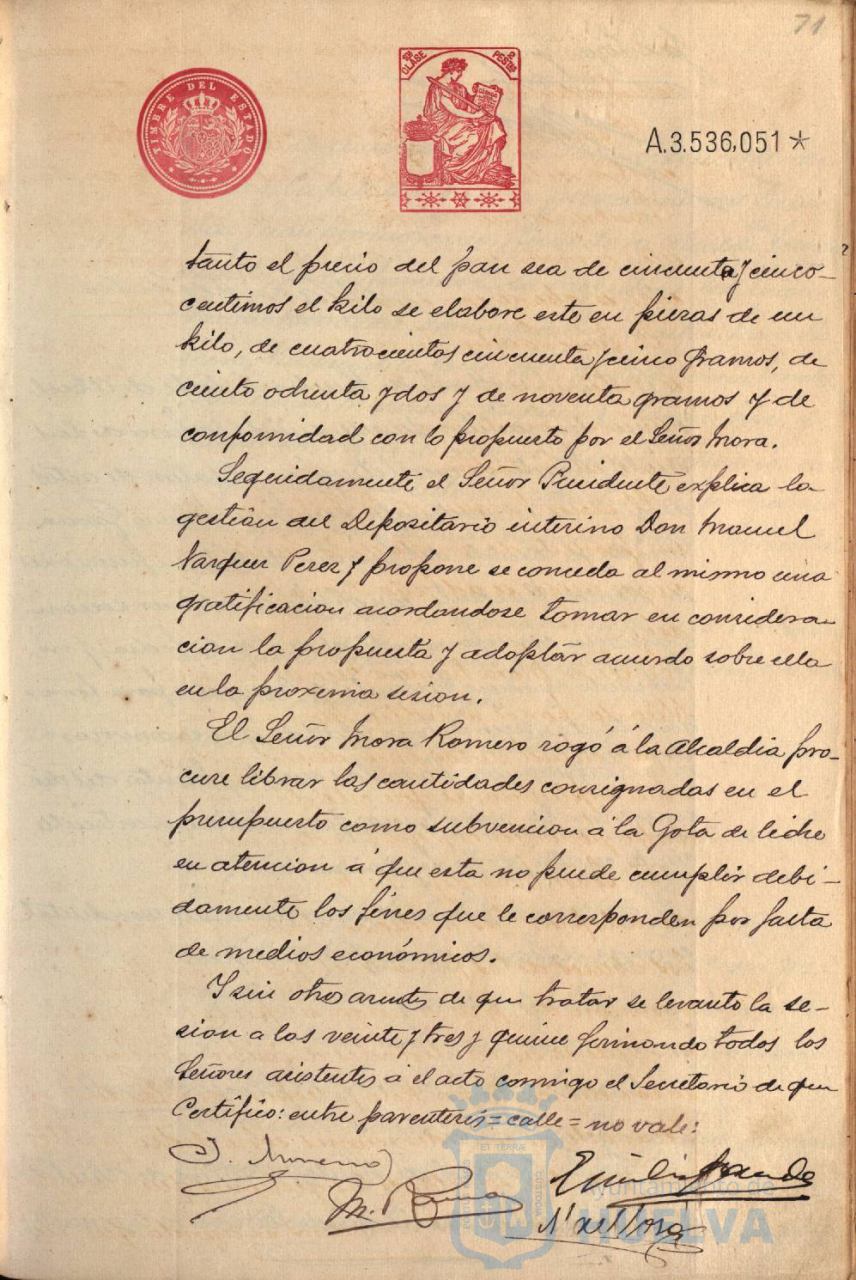 71
TIMBRE DEL ESTADO
8ª CLASE 2 PESTAS
A.3.536,051*
tanto el precio del pan sea de cincuenta y cinco
centimos el kilo se elabore este en piezas de un
kilo, de cuatrocientos cincuenta y cinco gramos, de
ciento ochenta y dos y de noventa gramos y de
conformidad con lo propuesto por el Señor Mora.
Seguidamente el Señor Presidente explica la
gestión del Depositario interino Don Manuel
Vazquez Perez y propone se conceda al mismo una
gratificacion acordandose tomar en considera-
cion la propuesta y adoptar acuerdo sobre ella
en la proxima sesion.
El Señor Mora Romero rogó á la Alcaldia pro-
cure librar las cantidades consignadas en el
presupuesto como subvencion á la Gota de leche
en atencion á que esta no puede cumplir debi-
damente los fines que le corresponden por falta
de medios económicos.
Y sin otros asuntos de que tratar se levanto la se-
sion a las veinte y tres y quince firmando todos los
Señores asistentes á el acto conmigo el Secretario de que
Certifico: entre parentesis = calle = no vale:
J. Moreno
M.
Ayuntamiento de
HUELVA